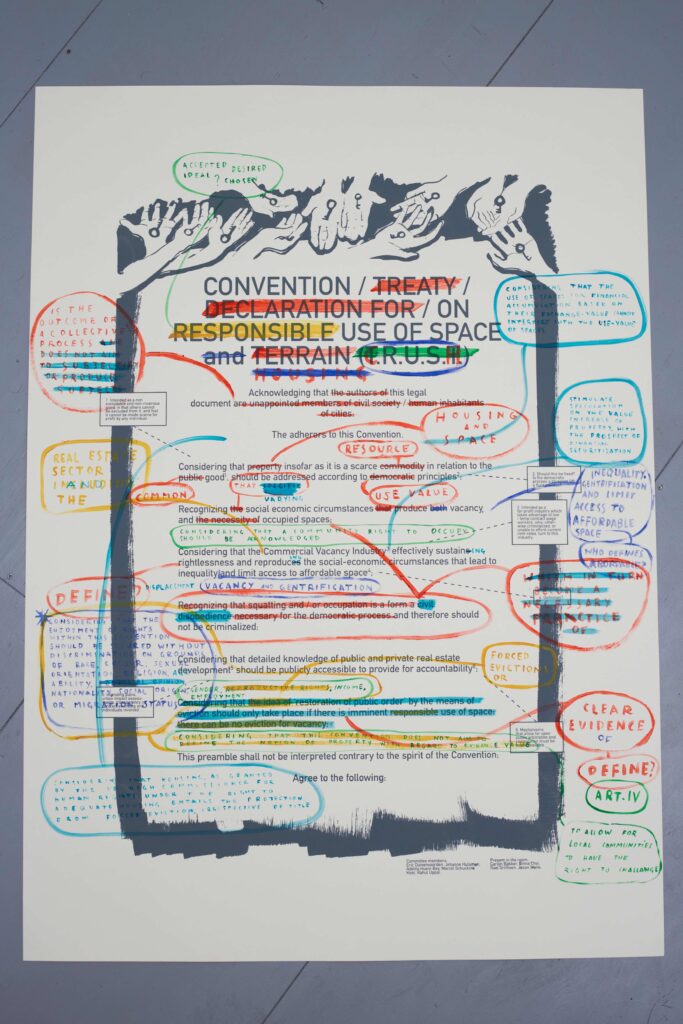 ACCEPTED DESIRED
IDEAL? CHOSEN
CONVENTION / TREATY /
DECLARATION FOR / ON
RESPONSIBLE USE OF SPACE
and TERRAIN (T.R.U.S.H.)
HOUSING
CONSIDERING THAT THE
USE OF SPACES FOR FINANCIAL
ACCUMULATION BASED ON
THEIR EXCHANGE-VALUE CANNOT
INTERFERE WITH THE USE-VALUE
OF SPACES
IS THE
OUTCOME OF
A COLLECTIVE
PROCESS
DOES NOT AIM
TO
OR PRODUCE
Acknowledging that the authors of this legal
document are unappointed members of civil society / human inhabitants
of cities.
The adherers to this Convention.
HOUSING
AND
SPACE
RESOURCE
STIMULATE
SPECULATION
ON THE VALUE
INCREASE OF
PROPERTY, WITH
THE PROSPECT OF
FINANCIAL
SECURITISATION
REAL ESTATE
SECTOR
IN AND
THE
Considering that property insofar as it is a scarce commodity in relation to the
public good¹, should be addressed according to democratic principles²;
COMMON
THAT SPECIFIC
VARYING
USE VALUE
Recognizing the social economic circumstances that produce both vacancy,
and the necessity of occupied spaces;
CONSIDERING THAT A COMMUNITY RIGHT TO OCCUPY
SHOULD BE ACKNOWLEDGED
INEQUALITY,
GENTRIFICATION
AND LIMIT
ACCESS TO
AFFORDABLE
SPACE
WHO DEFINES
Considering that the Commercial Vacancy Industry³ effectively sustains ING
rightlessness and reproduces ING the social-economic circumstances that lead to
inequality and limit access to affordable space⁴;
DEFINE?
DISPLACEMENT, VACANCY AND GENTRIFICATION
WHICH IN TURN
PRACTICE
OF
Recognizing that squatting and / or occupation is a form a civil
disobedience necessary for the democratic process and therefore should
not be criminalized;
CONSIDERING THAT THE
ENJOYMENT OF RIGHTS
WITHIN THIS CONVENTION
SHOULD BE SECURED WITHOUT
DISCRIMINATION ON GROUNDS
OF RACE, COLOUR, SEXUAL
ORIENTATION, RELIGION,
NATIONALITY, SOCIAL ORIGIN
OR MIGRATION STATUS
Considering that detailed knowledge of public and private real estate
development⁵ should be publicly accessible to provide for accountability;
FORCED
EVICTIONS OR
GENDER, REPRODUCTIVE RIGHTS, INCOME,
EMPLOYMENT
Considering that the idea of 'restoration of public order' by the means of
eviction should only take place if there is imminent responsible use of space:
there can be no eviction for vacancy;
CONSIDERING THAT THIS CONVENTION DOES NOT AIM TO
DEFINE THE NOTION OF PROPERTY WITH REGARD TO EXCHANGE VALUE
CLEAR
EVIDENCE
OF
DEFINE?
ART.IV
This preamble shall not be interpreted contrary to the spirit of the Convention.
Agree to the following:
CONSIDERING THAT HOUSING, AS GRANTED
BY THE UN HIGH COMMISSIONER FOR
HUMAN RIGHTS UNDER THE RIGHT TO
ADEQUATE HOUSING, ENTAILS THE PROTECTION
FROM FORCED EVICTION, IRRESPECTIVE OF TITLE
TO ALLOW FOR
LOCAL COMMUNITIES
TO HAVE THE
RIGHT TO CHALLENGE
Committee members:
Present in the room: